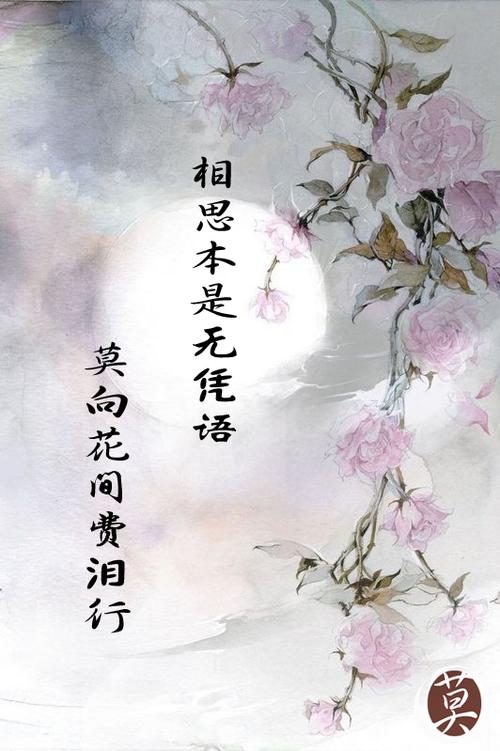 相思本是无凭语
莫向花间费泪行
莫